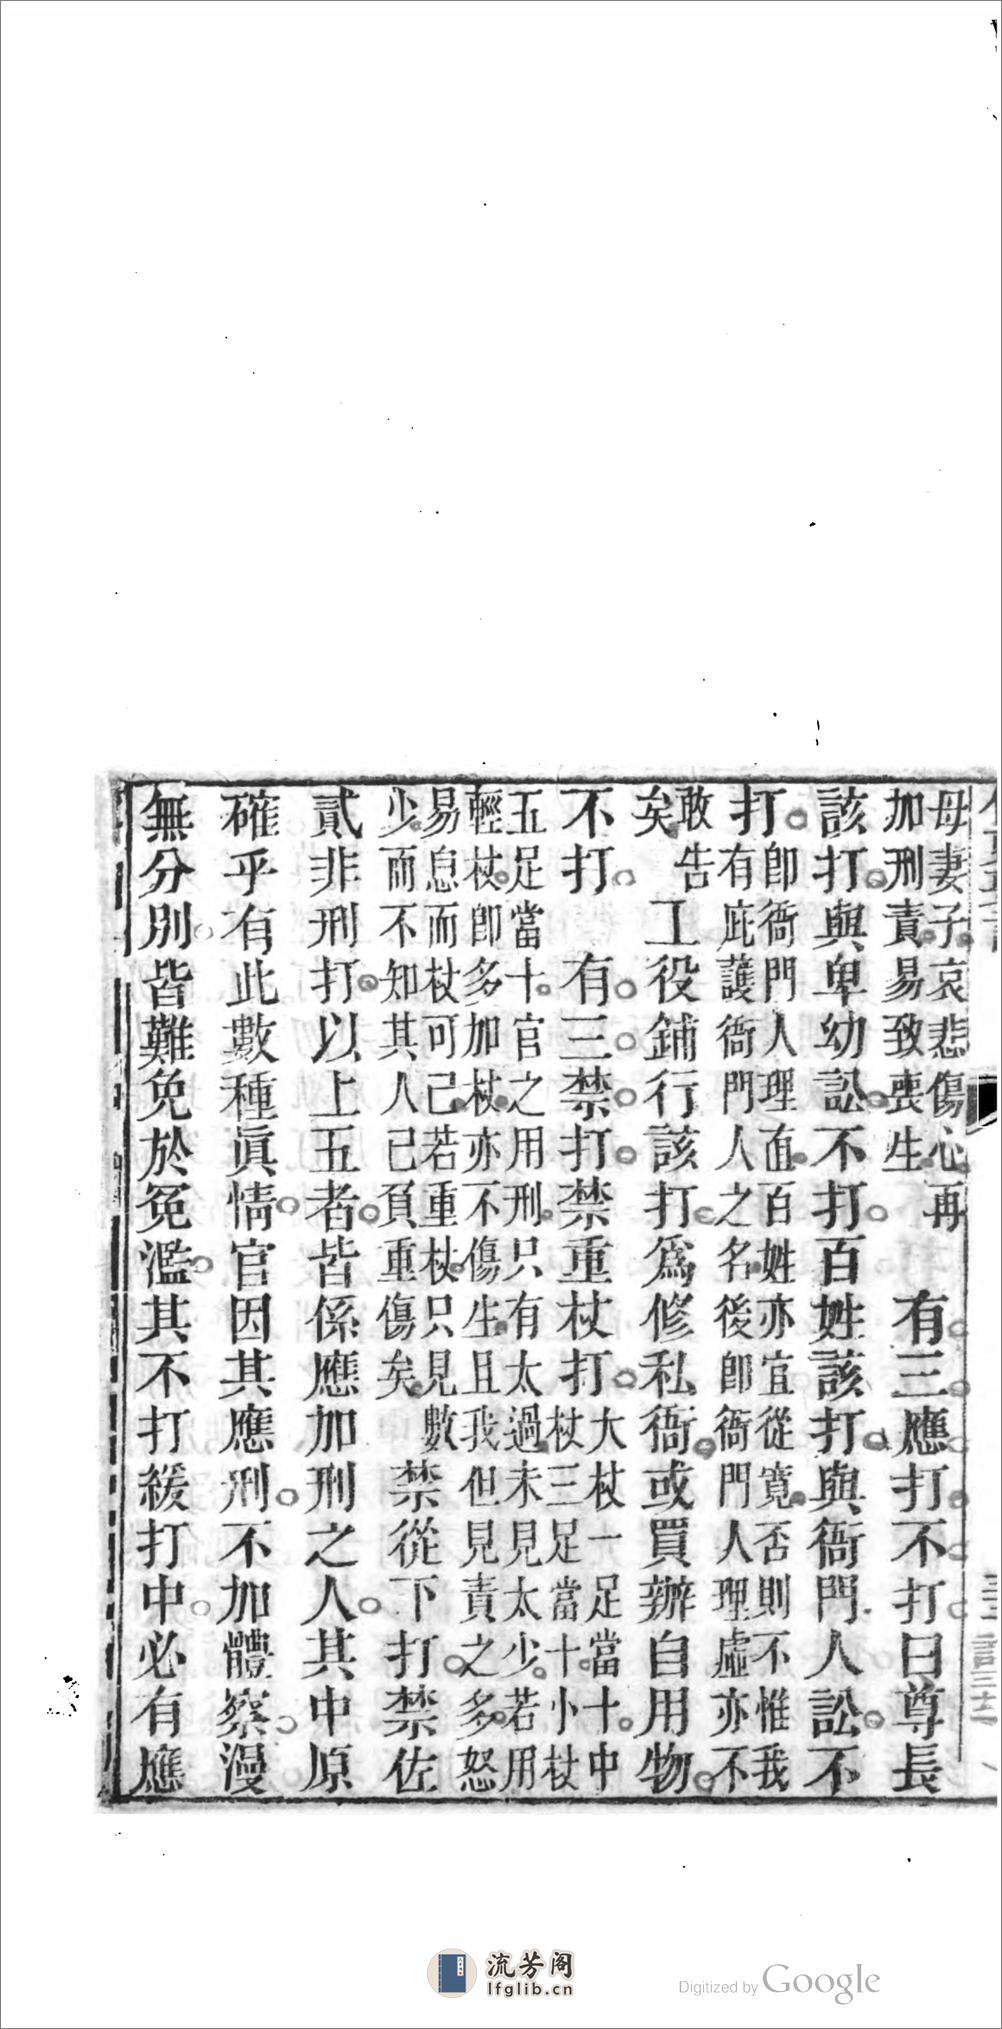 母妻子哀悲傷心再
加刑責易致喪生
有三應打不打曰尊長
該打與卑幼訟不打百姓該打與衙門人訟不
打
即衙門人理直百姓亦宜從寬否則不惟我
有庇護衙門人之名後即衙門人理虛亦不
敢告
矣
工役鋪行該打爲修私衙或買辦自用物
不打 有三禁打禁重杖打
大杖一足當十中
杖三足當十小杖
五足當十官之用刑只有太過未見太少若用
輕杖即多加杖亦不傷生且我但見責之多怒
易息而杖可己若重杖只見數
少而不知其人己負重傷矣
禁從下打禁佐
貳非刑打以上五者皆係應加刑之人其中原
確乎有此數種眞情官因其應刑不加體察漫
無分別皆難免於冤濫其不打緩打中必有應
流芳阁
lfglib.cn
Digitized by Google